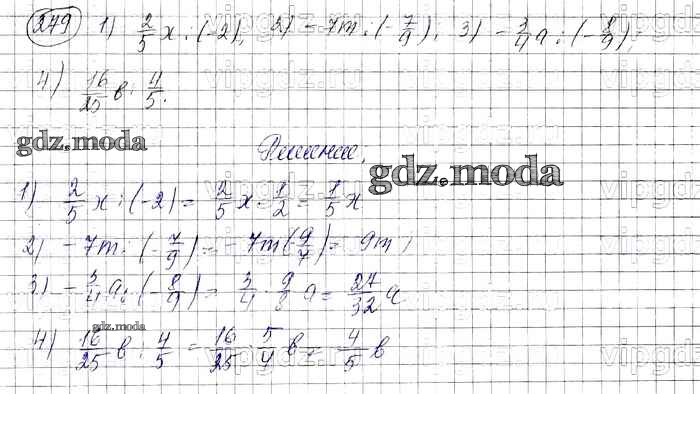 279 1) 2/5 x : (-2); 2) -7m : (-7/9); 3) -3/4 a : (-8/9);
4) 16/25 в : 4/5.
gdz.moda
Решение.
gdz.moda
1) 2/5 x : (-2) = 2/5 x · 1/2 = 1/5 x
2) -7m : (-7/9) = -7m (-9/7) = 9m;
3) -3/4 a : (-8/9) = 3/4 · 9/8 a = 27/32 a
gdz.moda
4) 16/25 в : 4/5 = 16/25 · 5/4 в = 4/5 в